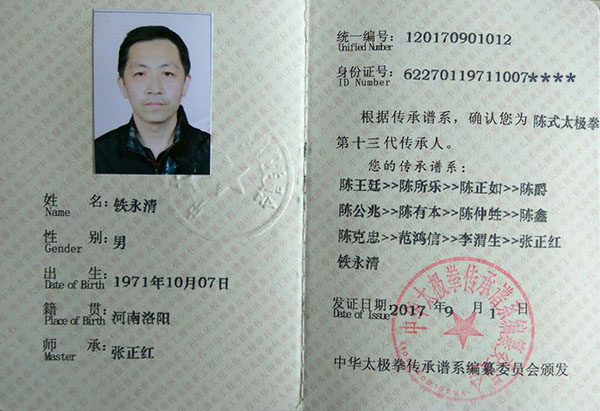 姓 名：铁永清
Name
性 别：男
Gender
出 生：1971年10月07日
Date of Birth
籍 贯：河南洛阳
Place of Birth
师 承：张正红
Master
统一编号：120170901012
Unified Number
身份证号：62270119711007****
ID Number
根据传承谱系，确认您为 陈式太极拳
第十三代传承人。
您的传承谱系：
陈王廷>>陈所乐>>陈正如>>陈爵
陈公兆>>陈有本>>陈仲甡>>陈鑫
陈克忠>>范鸿信>>李渭生>>张正红
铁永清
发证日期：2017 年 9 月 1 日
Date of Issue
中华太极拳传承谱系编纂委员会颁发
中华太极拳传承谱系编纂委员会